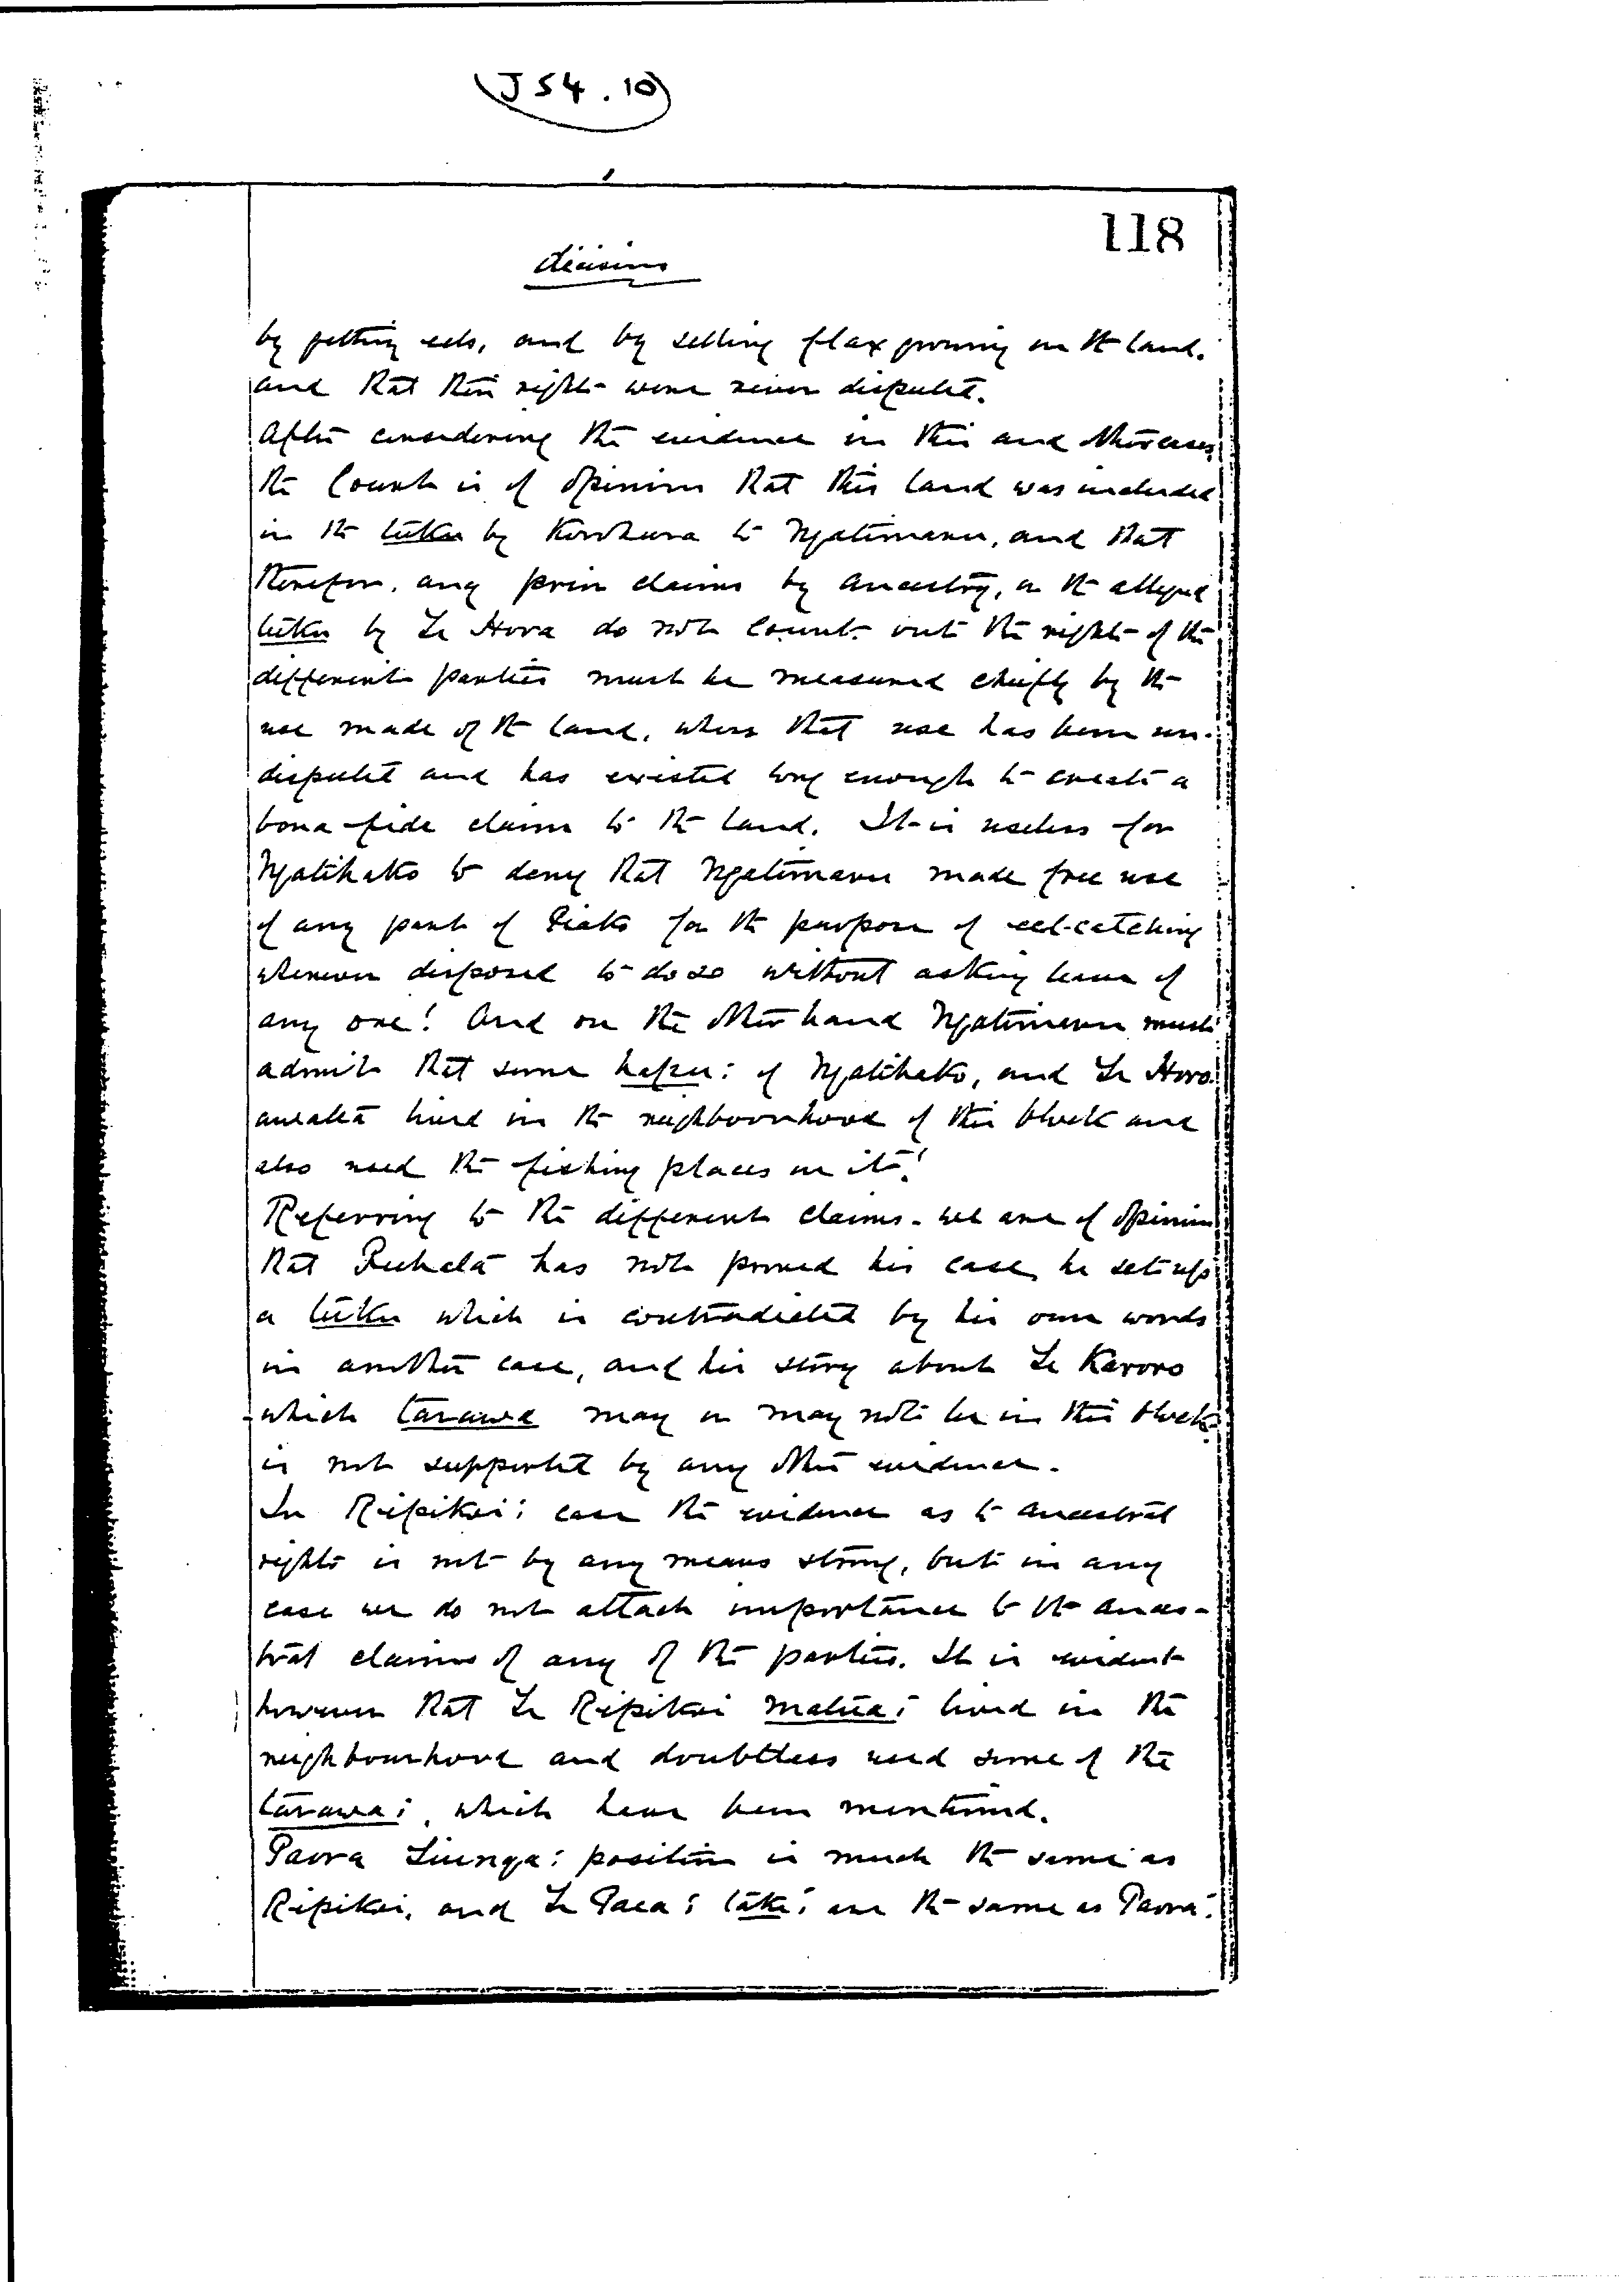 (J54.10)
118
decision
by getting eels, and by selling flax growing on the land.
and that their rights were never disputed.
After considering the evidence in this and other cases,
the Court is of opinion that this land was included
in the tuku by Korohura to Ngatimaru, and that
therefore, any prior claims by ancestry, or the alleged
tuku by Te Hora do not count. but the rights of the
different parties must be measured chiefly by the
use made of the land, where that use has been un-
disputed and has existed long enough to create a
bona-fide claim to the land. It is useless for
Ngatihako to deny that Ngatimaru made free use
of any part of Piako for the purpose of eel-catching
whenever disposed to do so without asking leave of
any one! And on the other hand Ngatimaru must
admit that some hapu: of Ngatihako, and Te Horo:
lived in the neighbourhood of this block and
also used the fishing places on it!
Referring to the different claims - we are of opinion
that has not proved his case, he sets up
a tuku which is contradicted by his own words
in another case, and his story about Te Karoro
which tarawa may or may not be in this block
is not supported by any other evidence.
In Ripikoi: case the evidence as to ancestral
rights is not by any means strong, but in any
case we do not attach importance to the ances-
tral claims of any of the parties. It is evident
however that Te Ripikoi matua: lived in the
neighbourhood and doubtless used some of the
tarawa:, which have been mentioned.
Paora Tiunga: position is much the same as
Ripikoi, and Te Paea: take: are the same as Paora: